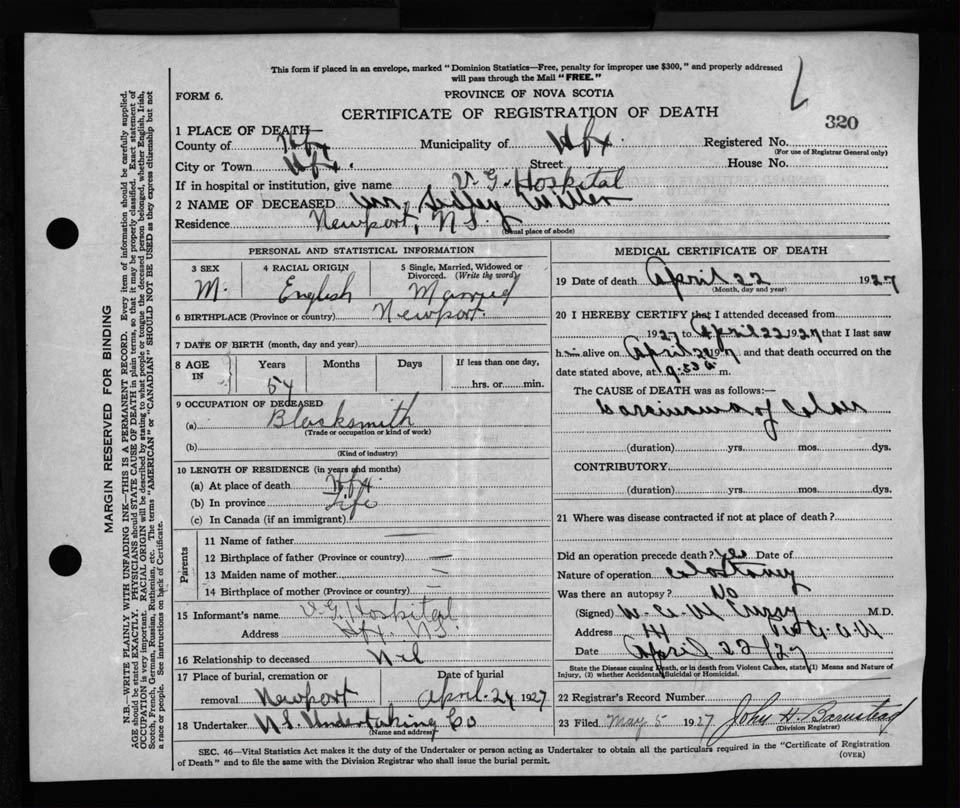 This form if placed in an envelope, marked "Dominion Statistics—Free, penalty for improper use $300," and properly addressed
will pass through the Mail "FREE."
FORM 6.
PROVINCE OF NOVA SCOTIA
CERTIFICATE OF REGISTRATION OF DEATH
320
1 PLACE OF DEATH—
County of Hfx Municipality of Hfx. Registered No.
(For use of Registrar General only)
City or Town Hfx. Street House No.
If in hospital or institution, give name V. G. Hospital
2 NAME OF DECEASED Sedley
Residence Newport, N.S.
(Usual place of abode)
PERSONAL AND STATISTICAL INFORMATION
3 SEX 4 RACIAL ORIGIN 5 Single, Married, Widowed or
Divorced. (Write the word)
M. English Married
6 BIRTHPLACE (Province or country) Newport.
7 DATE OF BIRTH (month, day and year)
8 AGE IN Years Months Days If less than one day,
54 hrs. or min.
9 OCCUPATION OF DECEASED
(a) Blacksmith
(Trade or occupation or kind of work)
(b)
(Kind of industry)
10 LENGTH OF RESIDENCE (in years and months)
(a) At place of death Hfx.
(b) In province Life
(c) In Canada (if an immigrant)
Parents
11 Name of father —
12 Birthplace of father (Province or country) —
13 Maiden name of mother —
14 Birthplace of mother (Province or country) —
15 Informant's name V.G. Hospital
Address Hfx. N.S.
16 Relationship to deceased Nil
17 Place of burial, cremation or removal Newport
Date of burial April 24 1927
18 Undertaker N S Undertaking Co
(Name and address)
MEDICAL CERTIFICATE OF DEATH
19 Date of death April 22 1927
(Month, day and year)
20 I HEREBY CERTIFY that I attended deceased from
1927 to April 22 1927 that I last saw
him alive on April 1927, and that death occurred on the
date stated above, at 9.53 a m.
The CAUSE of DEATH was as follows:—
Carcinoma of Colon
(duration) yrs. mos. dys.
CONTRIBUTORY
(duration) yrs. mos. dys.
21 Where was disease contracted if not at place of death?
Did an operation precede death? Yes Date of
Nature of operation Colostomy
Was there an autopsy? No
(Signed) M.D.
Address
Date April 22/27
State the Disease causing Death, or in death from Violent Causes, state (1) Means and Nature of
Injury, (2) whether Accidental, Suicidal or Homicidal.
22 Registrar's Record Number
23 Filed May 5 1927 John H. Barnstead
(Division Registrar)
SEC. 46—Vital Statistics Act makes it the duty of the Undertaker or person acting as Undertaker to obtain all the particulars required in the "Certificate of Registration
of Death" and to file the same with the Division Registrar who shall issue the burial permit.
(OVER)
MARGIN RESERVED FOR BINDING
N.B.—WRITE PLAINLY WITH UNFADING INK—THIS IS A PERMANENT RECORD. Every item of information should be carefully supplied.
AGE should be stated EXACTLY. PHYSICIANS should STATE CAUSE OF DEATH in plain terms, so that it may be properly classified. Exact statement of
OCCUPATION is very important. RACIAL ORIGIN will be described by stating to what people or tongue the deceased person belonged, whether English, Irish,
Scotch, French, German, Russian, Ruthenian, etc. The terms "AMERICAN" or "CANADIAN" SHOULD NOT BE USED as they express citizenship but not
a race or people. See instructions on back of Certificate.